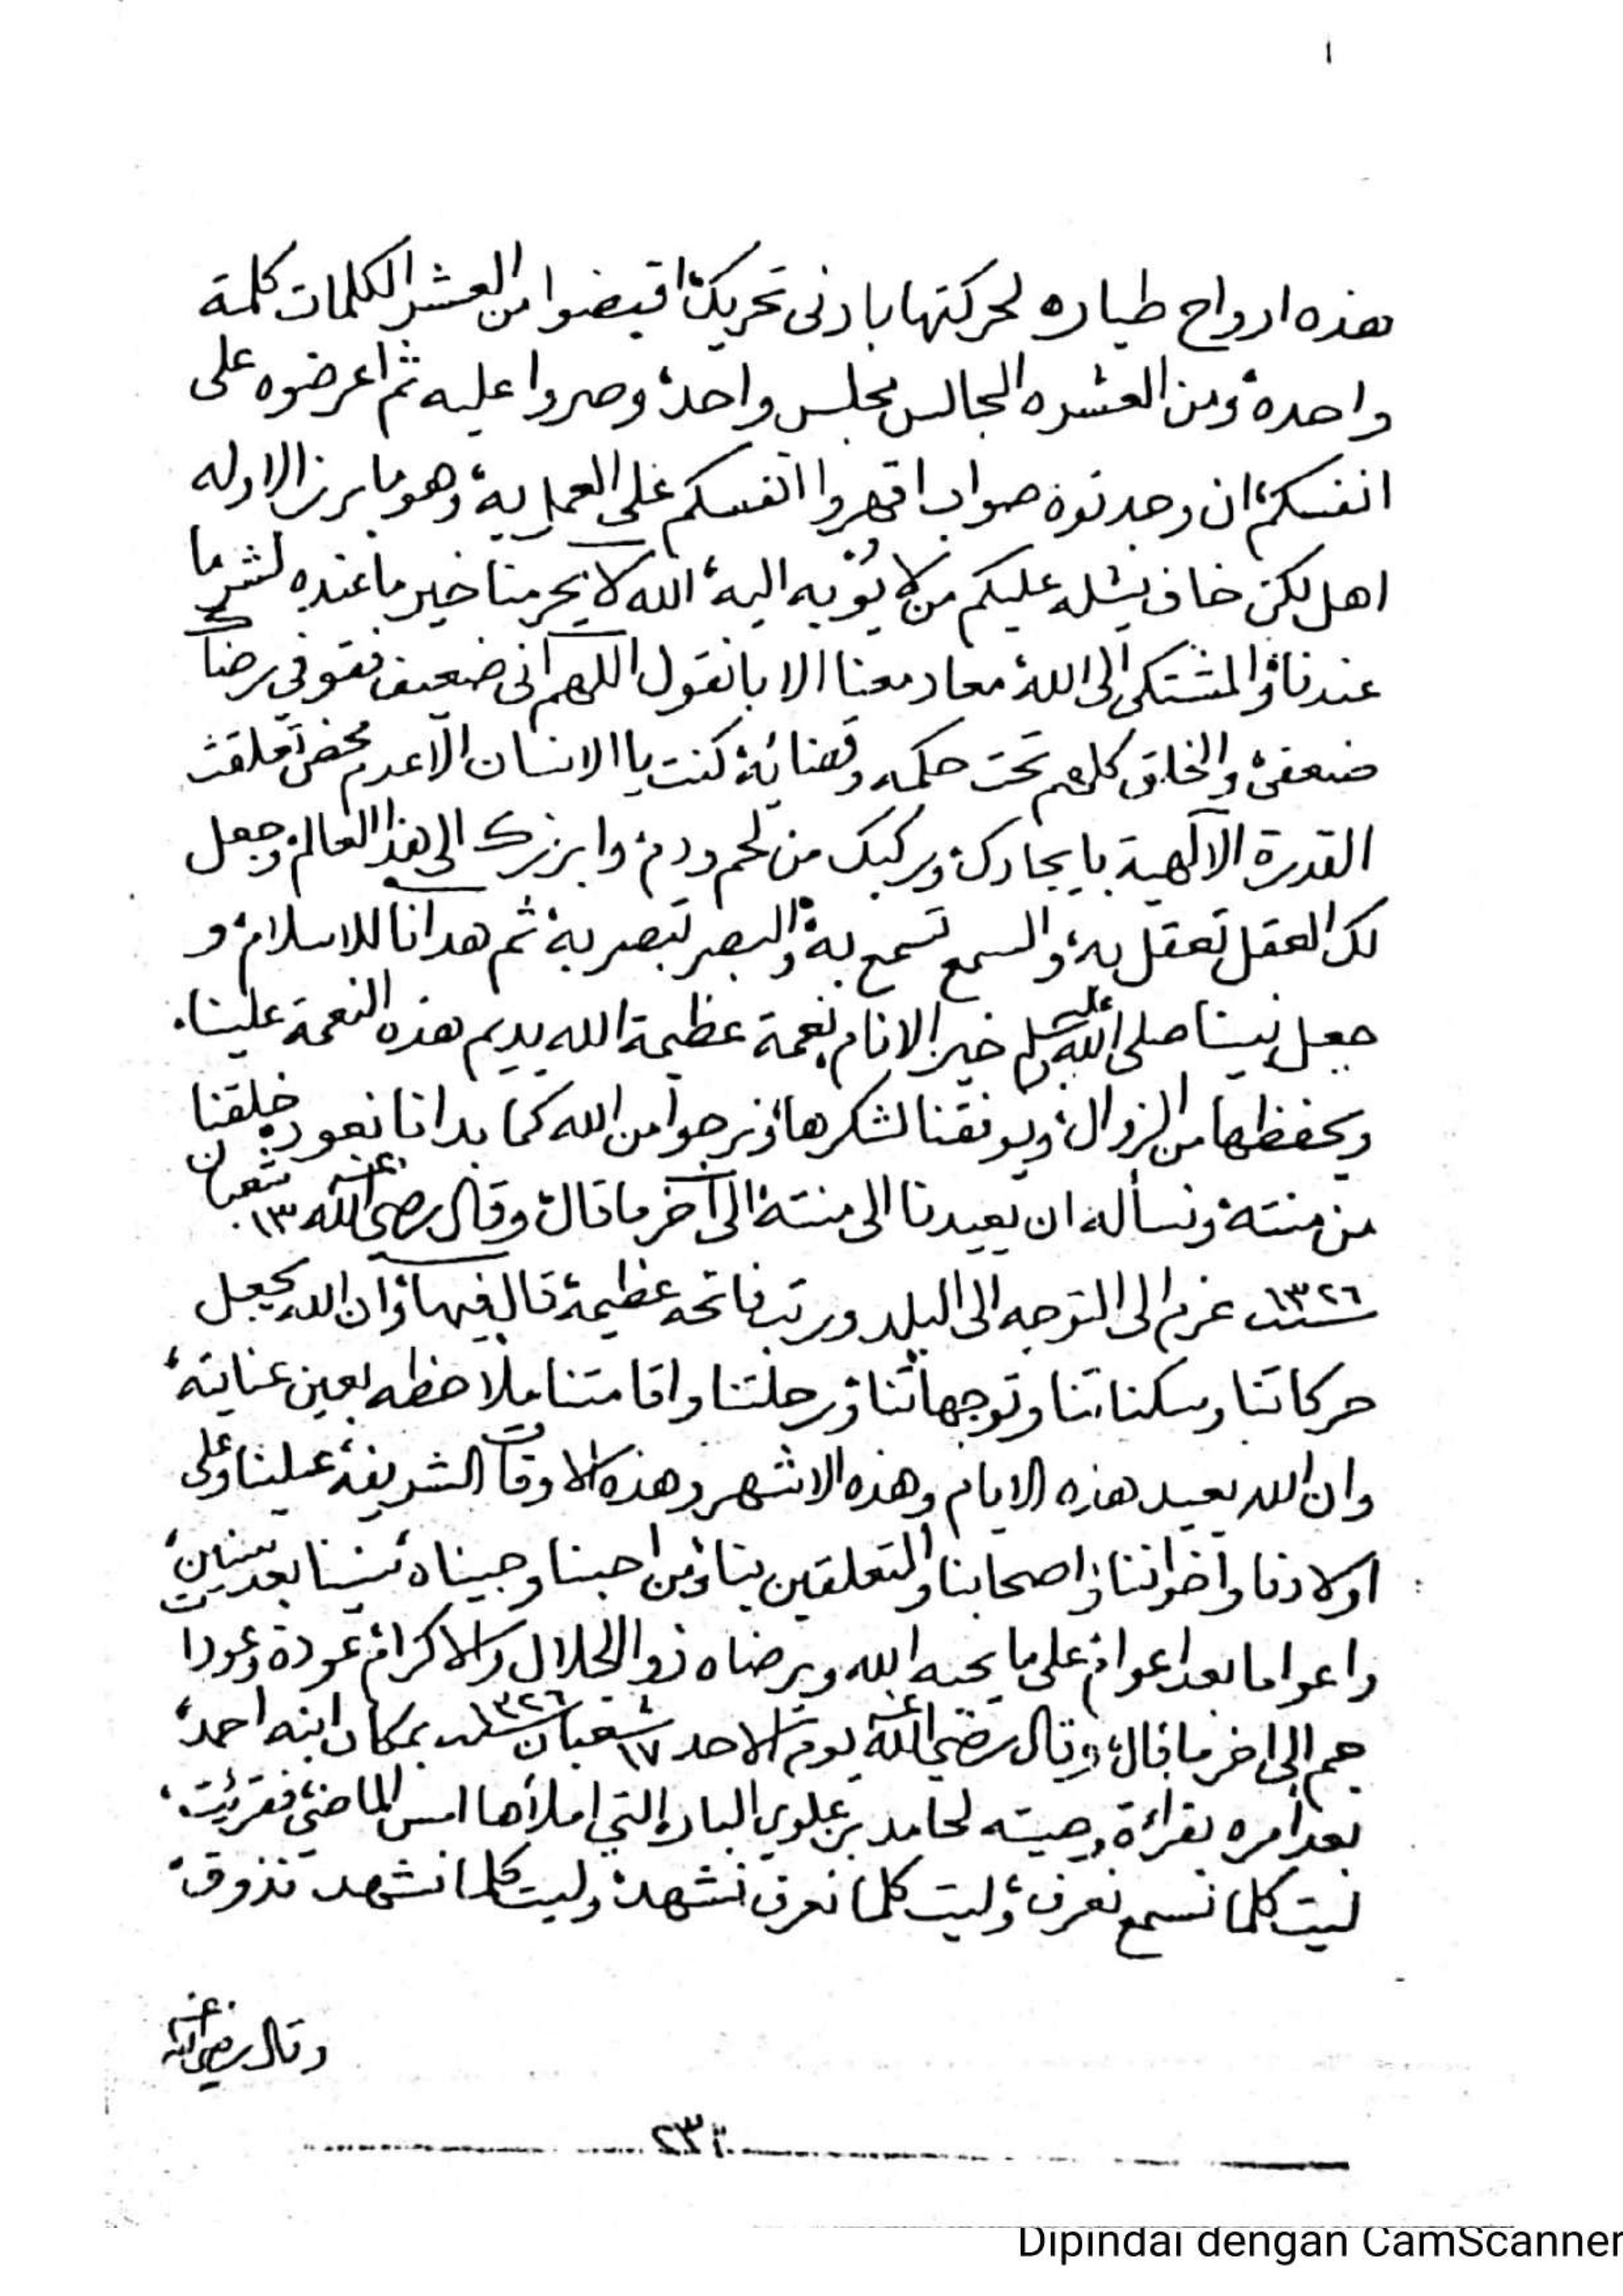 ١
هذه ارواح طياره لحركتها بادنى تحريك، اقبضوا من العشر الكلمات كلمة
واحده، ومن العشره المجالس مجلس واحد، وصروا عليه ثم اعرضوه على
انفسكم، ان وجدتوه صواب اقهروا انفسكم على العمل به، وهو ما برز الا وله
اهل لكن خاف يشله عليكم من لا يؤبه اليه، الله لا يحرمنا خير ما عنده لشر ما
عندنا، والمشتكى الى الله، معاد معنا الا بانقول اللهم انى ضعيف فقو في رضاك
ضعفي، والخلق كلهم تحت حكمه وقضائه، كنت يا الانسان الا عدم محض تعلقت
القدرة الآلهية بايجادك، وركبك من لحم ودم، وابرزك الى هذا العالم، وجعل
لك العقل تعقل به، والسمع تسمع به، والبصر تبصر به، ثم هدانا للاسلام، و
جعل نبينا صلى الله عليه وسلم خير الانام، نعمة عظيمة الله يديم هذه النعمة علينا،
ويحفظها من الزوال، ويوفقنا لشكرها، ونرجوا من الله كما بدانا نعود، خلقنا
من منته، ونسأله ان يعيدنا الى منته، الى آخر ما قال، وقال رضي الله عنه ١٣ شعبان
سنة ١٣٢٦ عزم الى التوجه الى البلد ورتب فاتحه عظيمة، قال فيها، وان الله يجعل
حركاتنا وسكناتنا وتوجهاتنا، ورحلتنا واقامتنا ملاحظه بعين عنايته،
وان الله يعيد هذه الايام وهذه الاشهر وهذه الاوقات الشريفة، علينا وعلى
اولادنا واخواننا، واصحابنا والمتعلقين بنا، ومن احبنا وحبيناه، سنينا بعد سنين،
واعواما بعد اعوام، على ما يحبه الله ويرضاه ذو الجلال والاكرام، عودة وعودا
جم الى اخر ما قال، وقال رضي الله عنه يوم الاحد ١٧ شعبان سنة ١٣٢٦ بمكان ابنه احمد،
بعد امره بقراءة وصيته لحامد بن علوي البار التي املأها امس الماضي، فقرئت،
ليت كلما نسمع نعرف، وليت كلما نعرف نشهد، وليت كلما نشهد نذوق،
وقال رضي الله عنه
Dipindai dengan CamScanner